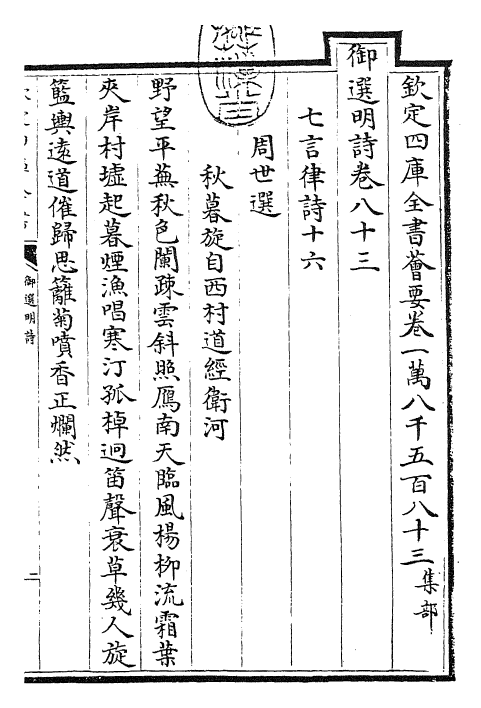 欽定四庫全書薈要卷一萬八千五百八十三 集部
御選明詩卷八十三
七言律詩十六
周世選
秋暮旋自西村道經衛河
野望平蕪秋色闌疎雲斜照鴈南天臨風楊柳流霜葉
夾岸村墟起暮煙漁唱寒汀孤棹迥笛聲衰草幾人旋
籃輿遠道催歸思籬菊噴香正爛然
御選明詩